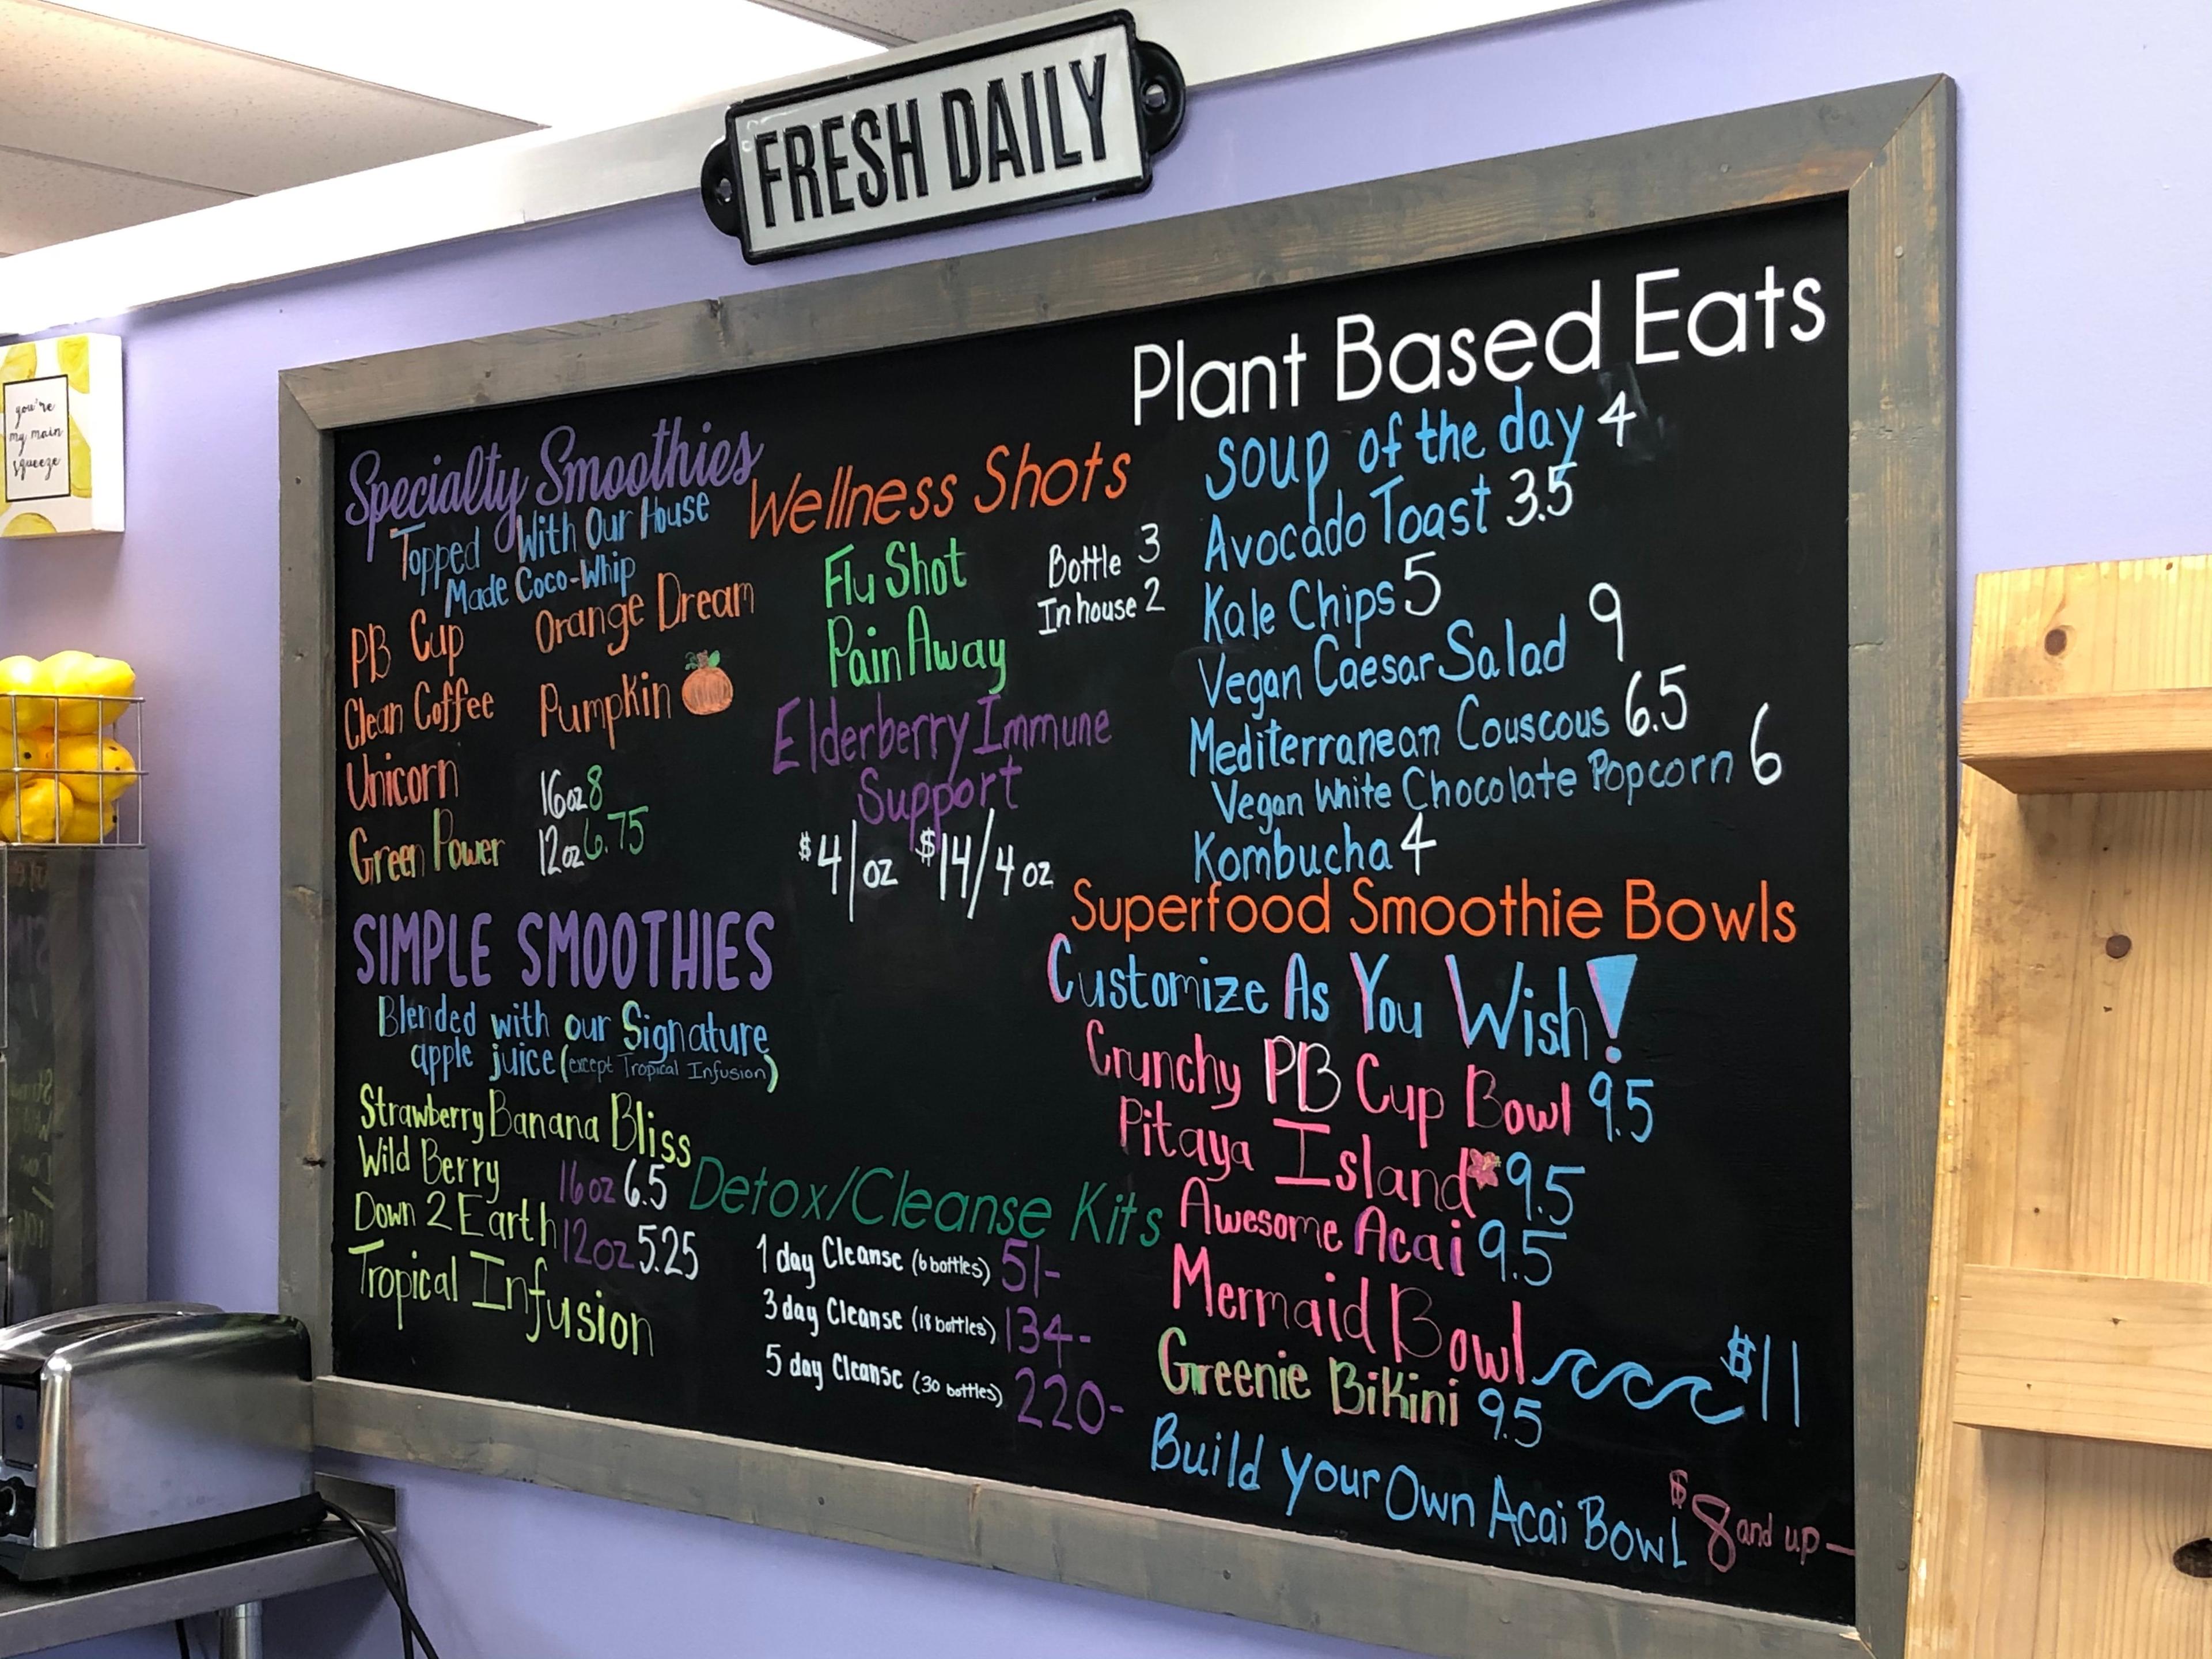 FRESH DAILY
you're
my main
squeeze
Specialty Smoothies
Topped With Our House
Made Coco-Whip
PB Cup Orange Dream
Clean Coffee Pumpkin
Unicorn 16oz 8
Green Power 12oz 6.75
SIMPLE SMOOTHIES
Blended with our Signature
apple juice (except Tropical Infusion)
Strawberry Banana Bliss
Wild Berry 16oz 6.5
Down 2 Earth 12oz 5.25
Tropical Infusion
Wellness Shots
Flu Shot Bottle 3
Pain Away In house 2
Elderberry Immune
Support
$4/oz $14/4oz
Detox/Cleanse Kits
1 day Cleanse (6 bottles) 51-
3 day Cleanse (18 bottles) 134-
5 day Cleanse (30 bottles) 220-
Plant Based Eats
Soup of the day 4
Avocado Toast 3.5
Kale Chips 5
Vegan Caesar Salad 9
Mediterranean Couscous 6.5
Vegan White Chocolate Popcorn 6
Kombucha 4
Superfood Smoothie Bowls
Customize As You Wish!
Crunchy PB Cup Bowl 9.5
Pitaya Island 9.5
Awesome Acai 9.5
Mermaid Bowl $11
Greenie Bikini 9.5
Build your Own Acai Bowl $8 and up-